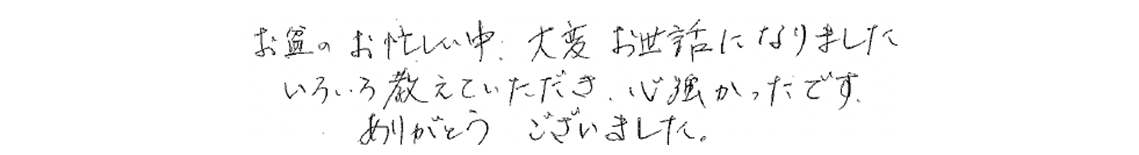 お盆のお忙しい中、大変お世話になりました
いろいろ教えていただき、心強かったです、
ありがとうございました。